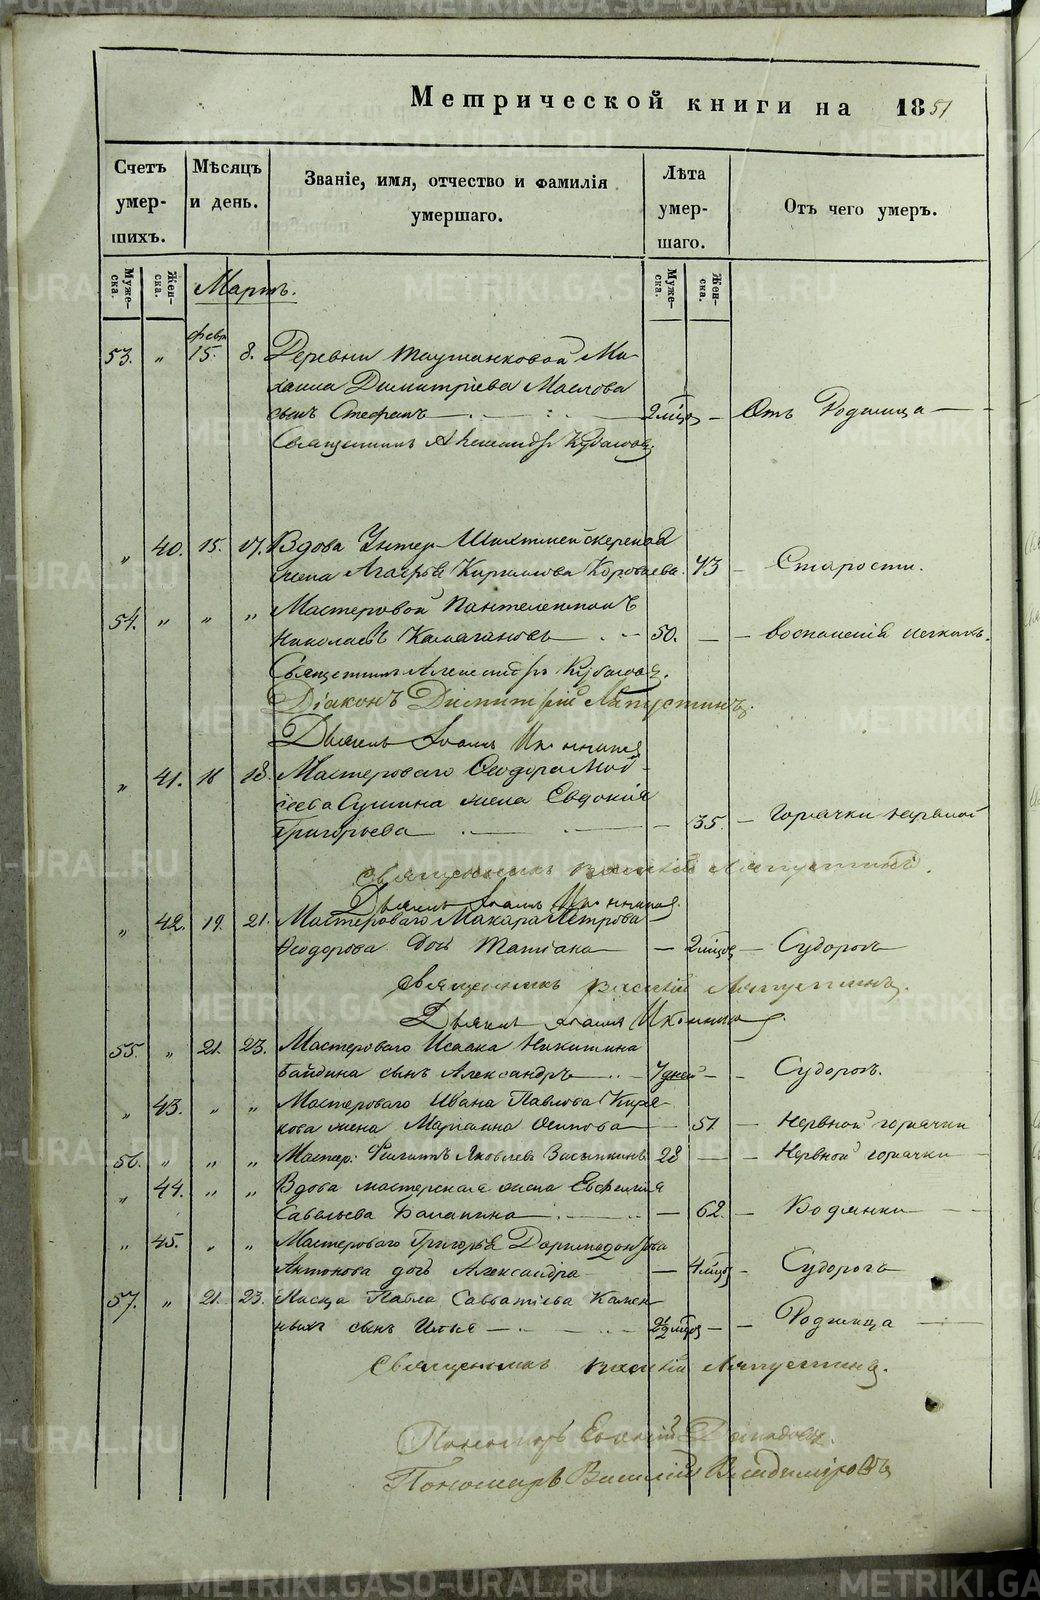 Метрической книги на 1851
Счетъ умер-шихъ.
Мѣсяцъ и день.
Званіе, имя, отчество и фамилія умершаго.
Лѣта умер-шаго.
Отъ чего умеръ.
Муже-ска.
Жен-ска.
Муже-ска.
Жен-ска.
Мартъ.
февр
53. " 15. 8. Деревни Таушканковой Ми-
хаила Димитріева Маслова
сынъ Стефанъ 2 мѣц Отъ Родимца
Священникъ Александръ
" 40. 15. 17. Вдова Унтер-Шихтмейстерская
жена Агафья Кирилова Короваева. 73 Старости.
54. " " " Мастеровой Пантелеимонъ
Николаевъ 50. воспаленія легкихъ.
Священникъ Александръ
Діаконъ Димитрій Ляпустинъ.
Дьячекъ Іоаннъ
" 41. 16 18. Мастероваго Ѳеодора Мой-
сеева Сушина жена Евдокія
Григорьева 35. горячки нервной
Священникъ Василій Ляпустинъ.
Дьячекъ Іоаннъ
" 42. 19. 21. Мастероваго Макара Петрова
Ѳеодорова дочь Татіана 2 мѣц Судорогъ
Священникъ Василій Ляпустинъ.
Дьячекъ Іоаннъ
55. " 21. 23. Мастероваго Исаака Никитина
Байдина сынъ Александръ 7 дней Судорогъ.
" 43. " " Мастероваго Ивана Павлова Кирю-
кова жена Маріамна Осипова 51 Нервной горячки
56. " " " Мастер. Филиппъ Яковлевъ Засыпкинъ 28 Нервной горячки
" 44. " " Вдова мастерская жена Евфимія
Савельева Балакина 62. Водянки
" 45. " " Мастероваго Григорья Доримедонтова
Антонова дочь Александра 4 мѣц Судорогъ
57. " 21. 23. Писца Павла Савватіева Камен-
ныхъ сынъ Илья 2½ мѣц Родимца
Священникъ Василій Ляпустинъ.
Пономарь Евгеній
Пономарь Василій Владиміровъ
METRIKI.GASO-URAL.RU